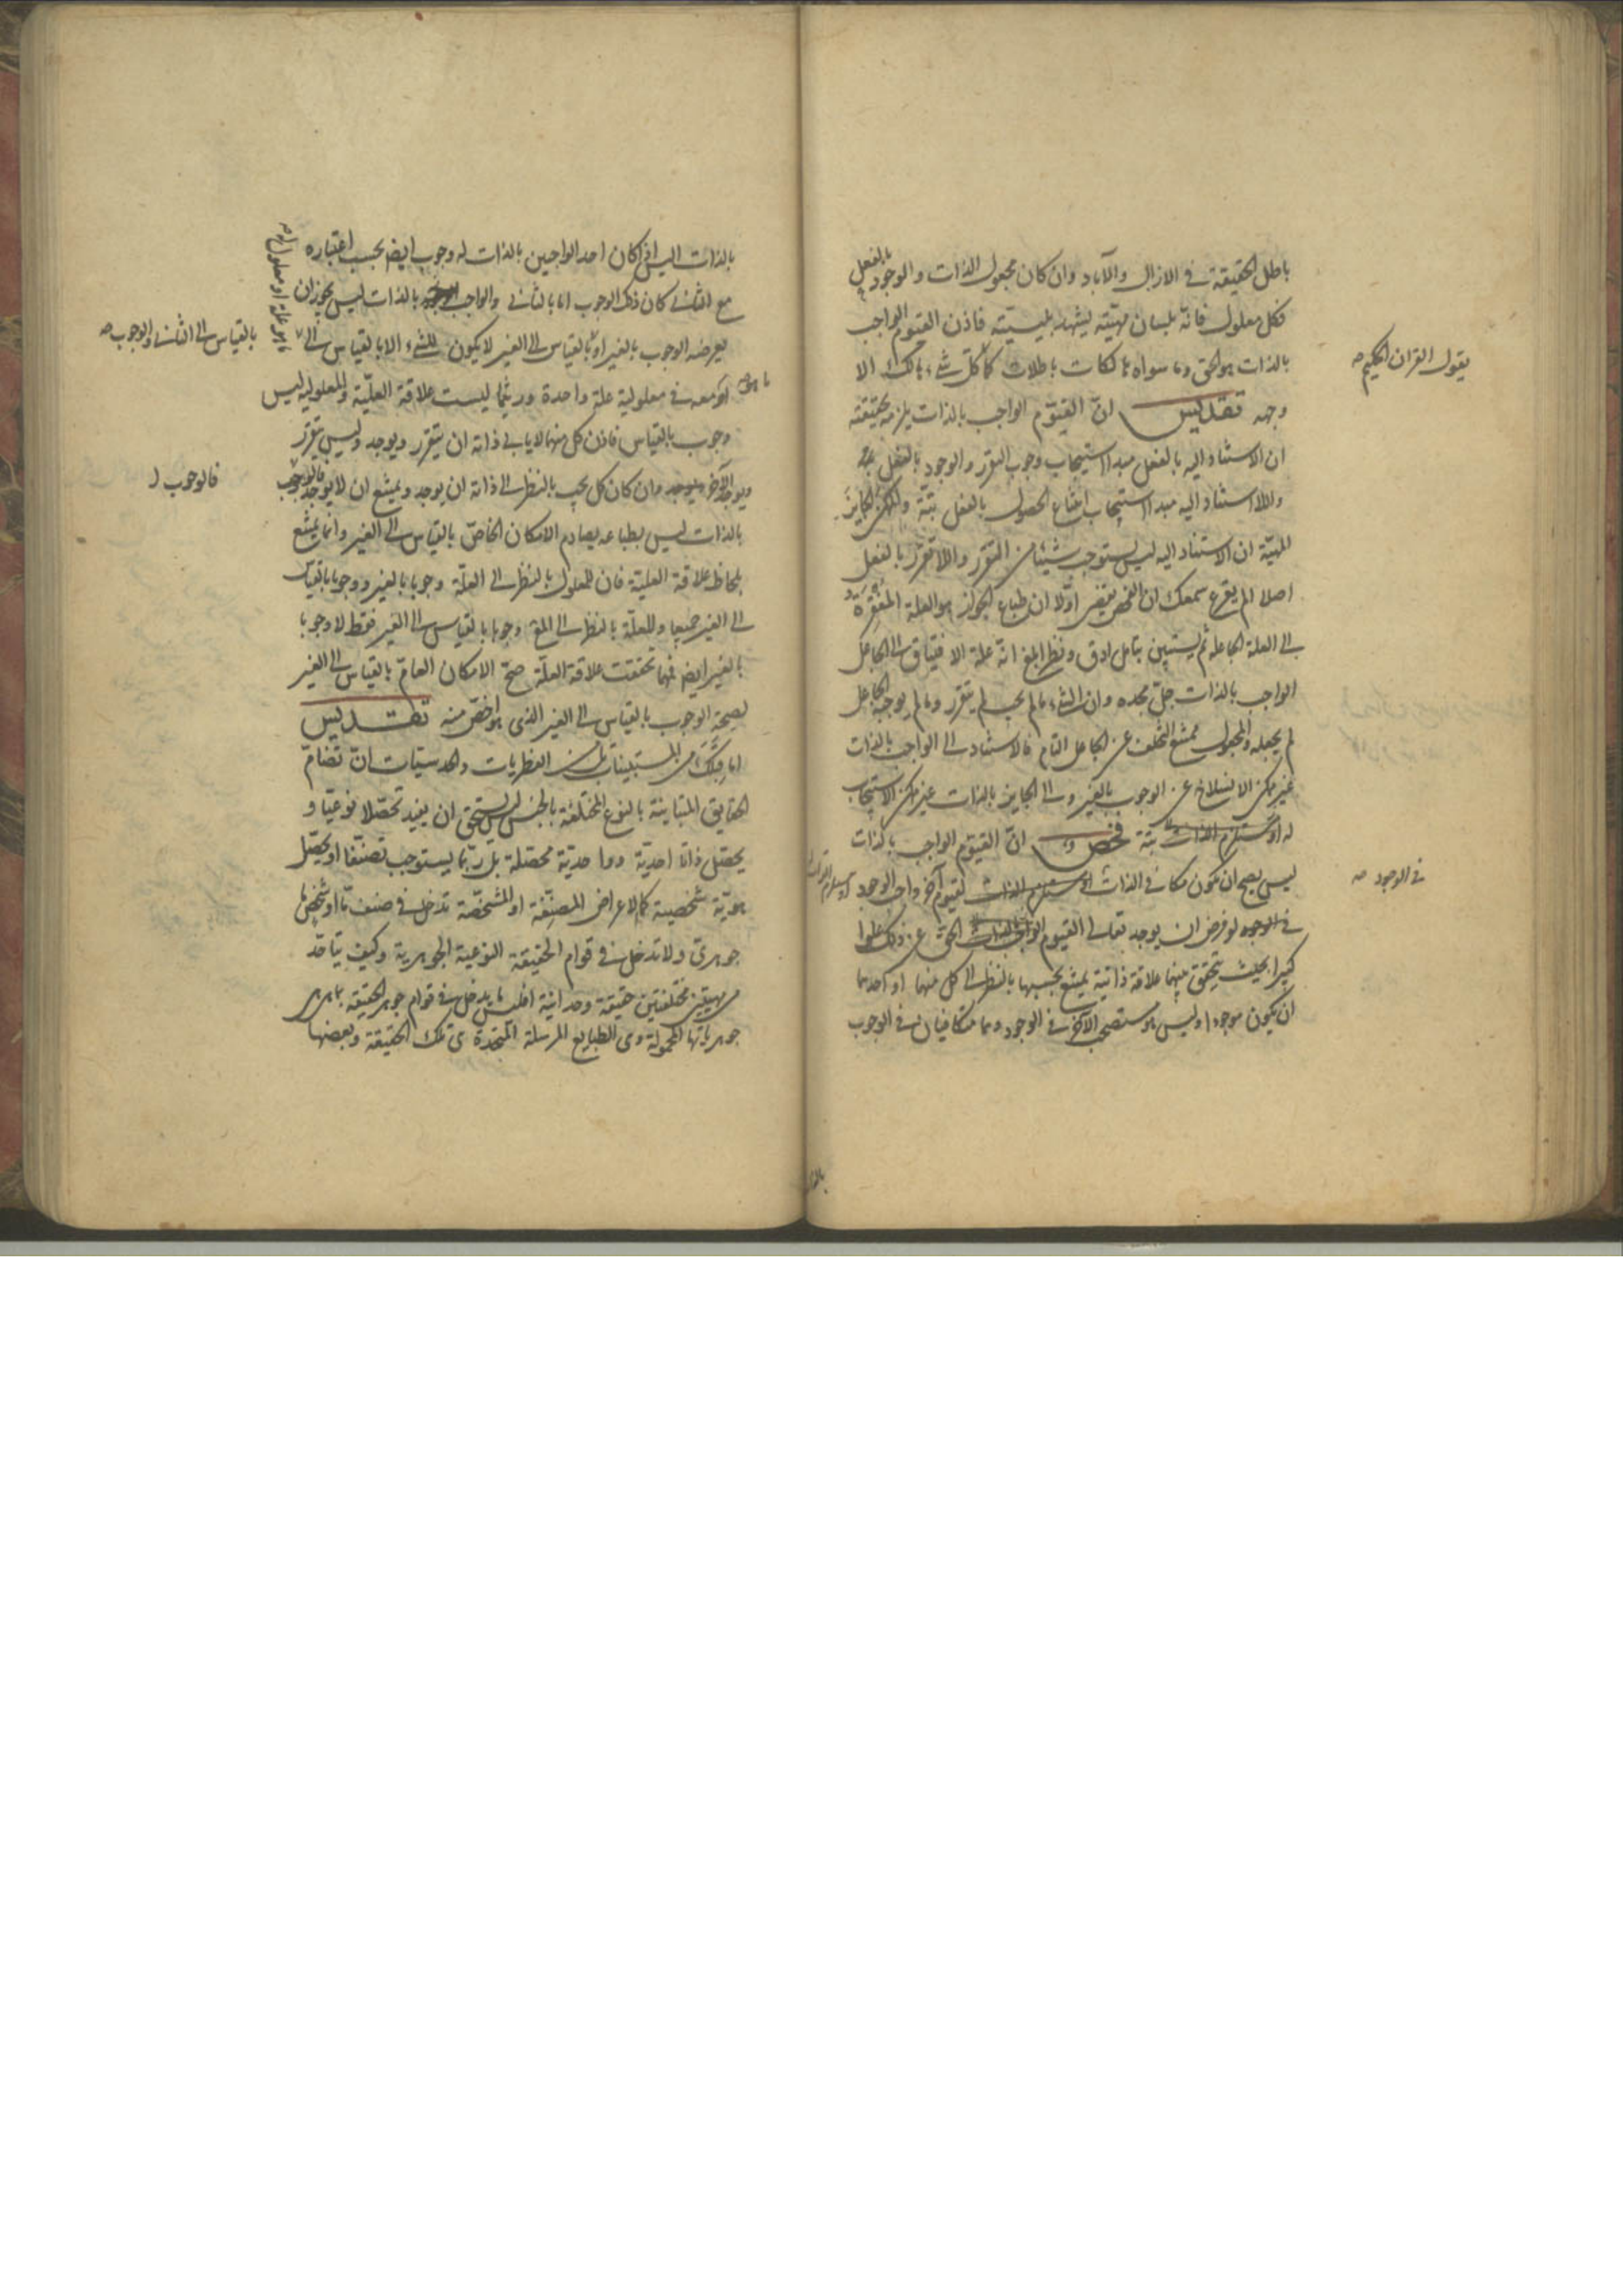 باطل الحقيقة في الازال والآباد وان كان مجعول الذات والوجود بالفعل
فكل معلول فانه بلسان مهيته يشهد بليسيته فاذن القيوم الواجب
بالذات هو الحق وما سواه هالكات باطلات كل شيء هالك الا
يقول القران الحكيم
وجهه تقديس ان القيوم الواجب بالذات يلزمه بحقيقته
ان الاستناد اليه بالفعل مبدا استيجاب وجوب التقرر والوجود بالفعل
واللااستناد اليه مبدا استيجاب امتناع الحصول بالفعل بتة والممكن الجايز
المهية ان الاستناد اليه ليس يستوجب شيئا من التقرر واللاتقرر بالفعل
اصلا الم يقرع سمعك ان الفحص يعطى اولا ان طباع الجواز هو العلة المفقرة
الى العلة الجاعلة ثم يستبين بتامل ادق ونظر ابلغ انه علة الافتياق الى الجاعل
الواجب بالذات جل مجده وان الشيء ما لم يجب لم يتقرر وما لم يوجبه الجاعل
لم يجعله والمجعول ممتنع التخلف عن الجاعل التام فالاستناد الى الواجب بالذات
غير ممكن الانسلاخ عن الوجوب بالغير والى الجايز بالذات غير ممكن الاستيجاب
له او بتة فحص ان القيوم الواجب بالذات
ليس يصح ان يكون مكافي الذات لقيوم آخر واجب الوجود
في الوجود
في الوجود لو فرض ان يوجد تعالى القيوم الحق عن ذلك علوا
كبيرا بحيث يتحقق بينهما علاقة ذاتية يمتنع بحسبها بالنظر الى كل منهما او احدهما
ان يكون موجودا وليس هو مستصحب الآخر في الوجود وهما متكافيان في الوجوب
بالذات اليس اذا كان احد الواجبين بالذات له وجوب ايضا بحسب اعتباره
مع الثاني كان ذلك الوجوب اما بالثاني والواجب بالذات ليس يجوز ان
يعرضه الوجوب بالغير او بالقياس الى الغير لا يكون للشيء الا بالقياس الى
ما هو علة او معلول له
بالقياس الى الثاني والوجوب
او معه في معلولية علة واحدة وريثما ليست علاقة العلية والمعلولية ليس
ما هو
وجوب بالقياس فاذن كل منهما لا يابى ذاته ان يتقرر ويوجد وليس يتقرر
ويوجد الآخر وان كان كل يجب بالنظر الى ذاته ان يوجد ويمتنع ان لا يوجد
فالوجوب
بالذات ليس بطباعه يصادم الامكان الخاص بالقياس الى الغير وانما يمتنع
بلحاظ علاقة العلية فان للمعلول بالنظر الى العلة وجوبا بالغير ووجوبا بالقياس
الى الغير جميعا وللعلة بالنظر الى المع وجوبا بالقياس الى الغير فقط لا وجوبا
بالغير ايضا فمهما تحققت علاقة العلة صح الامكان العام بالقياس الى الغير
لصحة الوجوب بالقياس الى الغير الذي هو اخص منه تقديس
من المستبينات لك من الفطريات والحدسيات ان تضام
الحقايق المتباينة بالنوع المختلفة بالجنس ليس يستحق ان يفيد تحصلا نوعيا و
يحصل ذاتا احدية ووا حدية محصلة بل ربما يستوجب تصنفا او يحصل
هوية شخصية كما الاعراض المصنفة او المشخصة تدخل في صنف ما او شخص ما
جوهري ولا تدخل في قوام الحقيقة النوعية الجوهرية وكيف يتاحد
من مهيتين مختلفتين حقيقة وحدانية افليس ما يدخل في قوام جوهر الحقيقة بما هي هي
جوهرياتها المحمولة وهى الطبايع المرسلة المتحدة هى تلك الحقيقة وبعضها